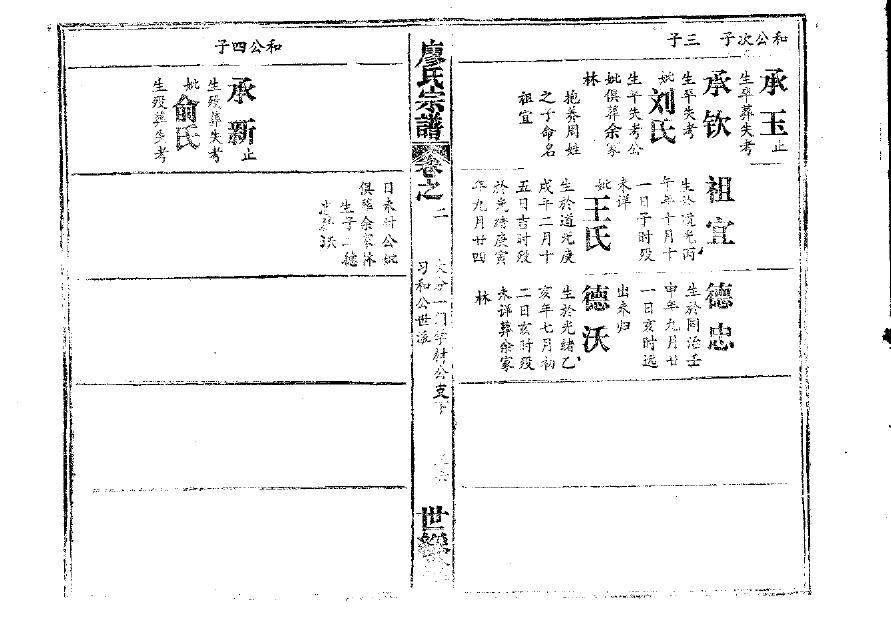 和公次子
三子
承玉止
生卒葬失考
承钦
生卒失考
妣刘氏
生卒失考公
妣俱葬余家
林
抱养周姓
之子命名
祖宜
祖宜
生於道光丙
午年十月十
一日子时殁
未详
妣王氏
生於道光庚
戌年二月十
五日吉时殁
於光绪庚寅
年九月廿四
德忠
生於同治壬
申年九月廿
一日亥时远
出未归
德沃
生於光绪乙
亥年七月初
二日亥时殁
未详葬余家
林
廖氏宗谱
卷之二
大分一门字
公支下
习和公世派
世
和公四子
承新止
生殁葬失考
妣俞氏
生殁葬失考
日未时公妣
俱葬余家林
生子二德
忠德沃